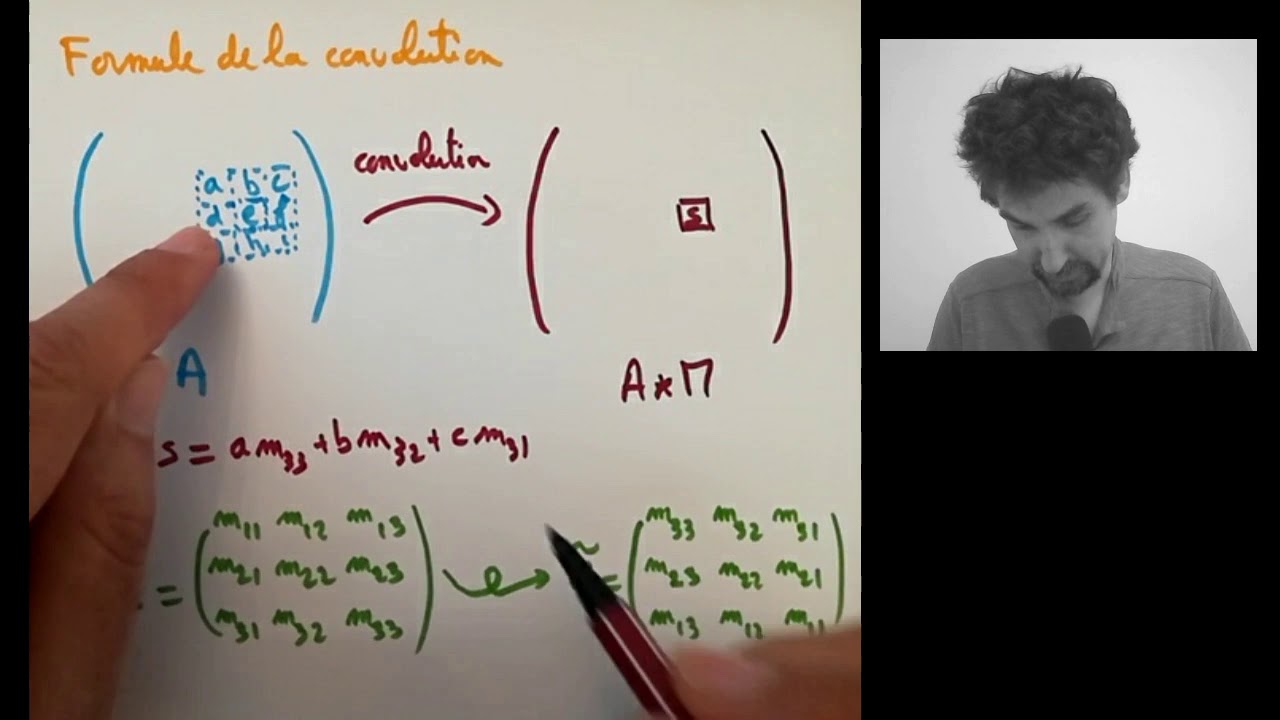 Formule de la convolution
a b c
d e f
h i
convolution
s
A
A * M
s = a m₃₃ + b m₃₂ + c m₃₁
= ( m₁₁ m₁₂ m₁₃
m₂₁ m₂₂ m₂₃
m₃₁ m₃₂ m₃₃ )
= ( m₃₃ m₃₂ m₃₁
m₂₃ m₂₂ m₂₁
m₁₃ m₁₂ m₁₁ )